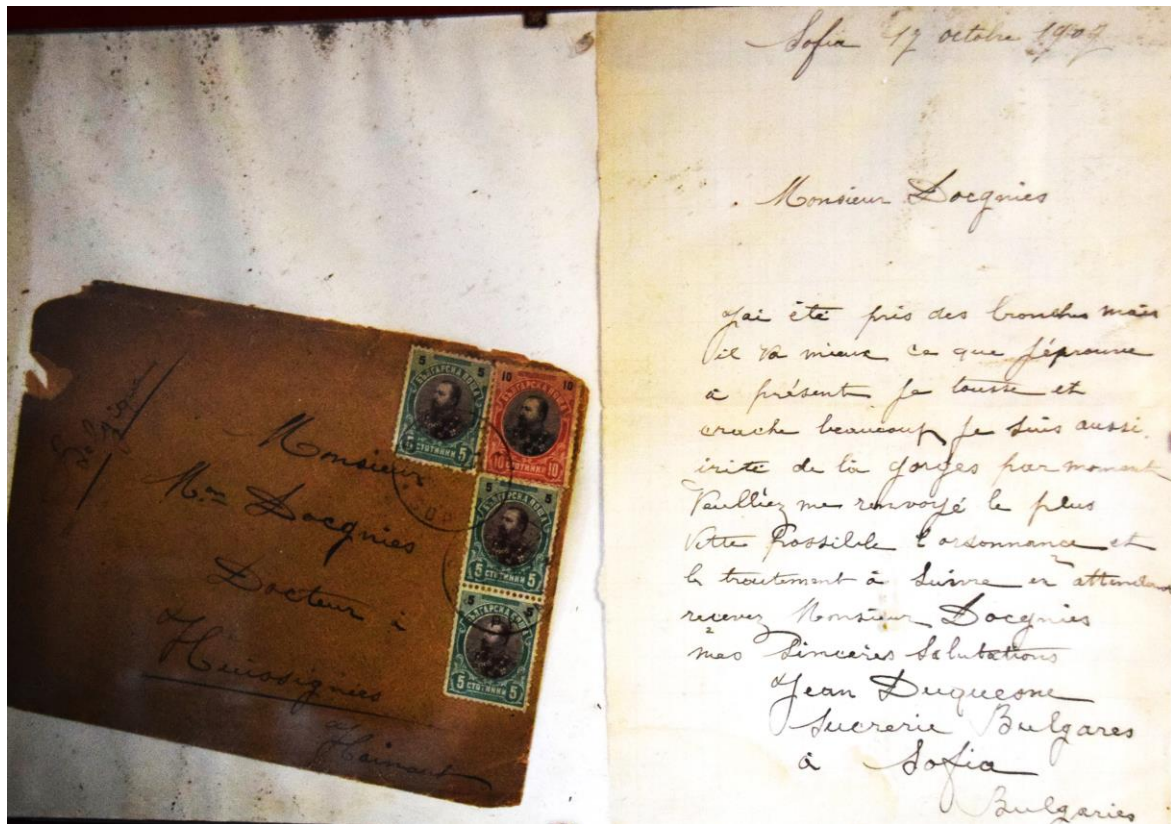 Monsieur
Mon Docgnies
Docteur à
Huissignies
Hainaut
Belgique
5 5
БЪЛГАРСКА ПОЩА
5 СТОТИНКИ 5
10 10
БЪЛГАРСКА ПОЩА
10 СТОТИНКИ 10
5 5
БЪЛГАРСКА ПОЩА
5 СТОТИНКИ 5
5 5
БЪЛГАРСКА ПОЩА
5 СТОТИНКИ 5
Sofia 17 octobre 1907
Monsieur Docgnies
J'ai été pris des bronches mais
il va mieux ce que j'éprouve
à présent je tousse et
crache beaucoup je suis aussi
irité de la gorges par moment
Veulliez me renvoyé le plus
vitte Possible l'ordonnance et
le traitement à suivre en attendant
recevez Monsieur Docgnies
mes Sincères Salutations
Jean Duquesne
Sucrerie Bulgares
à Sofia
Bulgaries